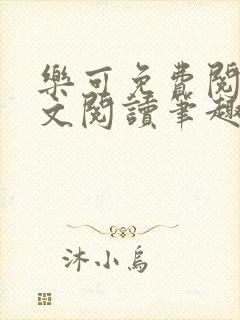 樂可免費閱
文閱讀筆趣
沐小烏